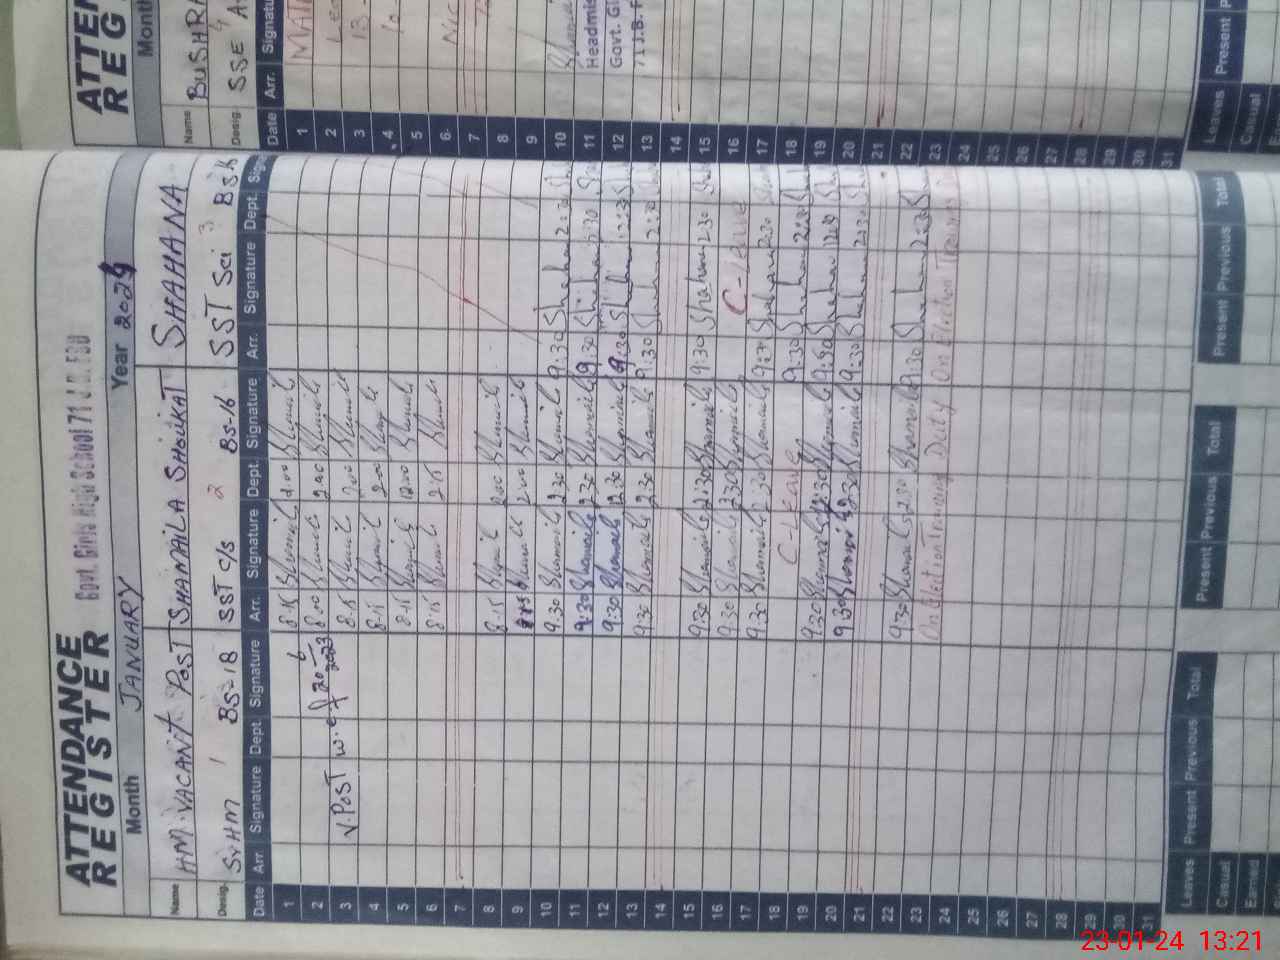 ATTENDANCE
REGISTER
Govt. Girls High School 71 J.B. FBD
Month JANUARY Year 2024
Name HM. VACANT POST SHAMAILA SHOUKAT SHAHANA
Desig. SrHM 1 BS-18 SST C/S 2 BS-16 SST Sci 3 BS-16
Date Arr. Signature Dept. Signature Arr. Signature Dept. Signature Arr. Signature Dept. Sig
1 8.15 Shamaila 2.00 Shamaila
2 8.00 Shamaila 2.00 Shamaila
3 V. POST w.e.f 20/6 2023 8.15 Shamaila 2.00 Shamaila
4 8.15 Shamaila 2.00 Shamaila
5 8.15 Shamaila 12.00 Shamaila
6 8.15 Shamaila 2.15 Shamaila
7
8 8.15 Shamaila 2.00 Shamaila
9 Shamaila 2.00 Shamaila
10 9.30 Shamaila 2.30 Shamaila 9:30 Shahana 2:30 Sha
11 9:30 Shamaila 2.30 Shamaila 9:30 Shahana 2:30 Sha
12 9.30 Shamaila 12.30 Shamaila 9:30 Shahana 12:30 Sha
13 9.30 Shamaila 2.30 Shamaila 9:30 Shahana 2:30 Sha
14
15 9.30 Shamaila 2.30 Shamaila 9:30 Shahana 2:30 Sha
16 9.30 Shamaila 2.30 Shamaila C-Leave
17 9.30 Shamaila 2.30 Shamaila 9:30 Shahana 2:30 Sha
18 C-Leave 9:30 Shahana 2:30 Sha
19 9.30 Shamaila 12.30 Shamaila 9:30 Shahana 12:30 Sha
20 9.30 Shamaila 2.30 Shamaila 9:30 Shahana 2:30 Sha
21
22 9.30 Shamaila 2.30 Shamaila 9:30 Shahana 2:30 Sha
23 On Election Training Duty On Election Training
24
25
26
27
28
29
30
31
Leaves Present Previous Total Present Previous Total Present Previous Total
Casual
Earned
ATTEN
REG
Month
Name BUSHRA
Desig. SSE
Date Arr. Signatu
1
2
3
4
5
6
7
8
9
10
11 Headmis
12 Govt. Gi
13 71 J.B. F
14
15
16
17
18
19
20
21
22
23
24
25
26
27
28
29
30
31
Leaves Present P
Casual
23-01-24 13:21